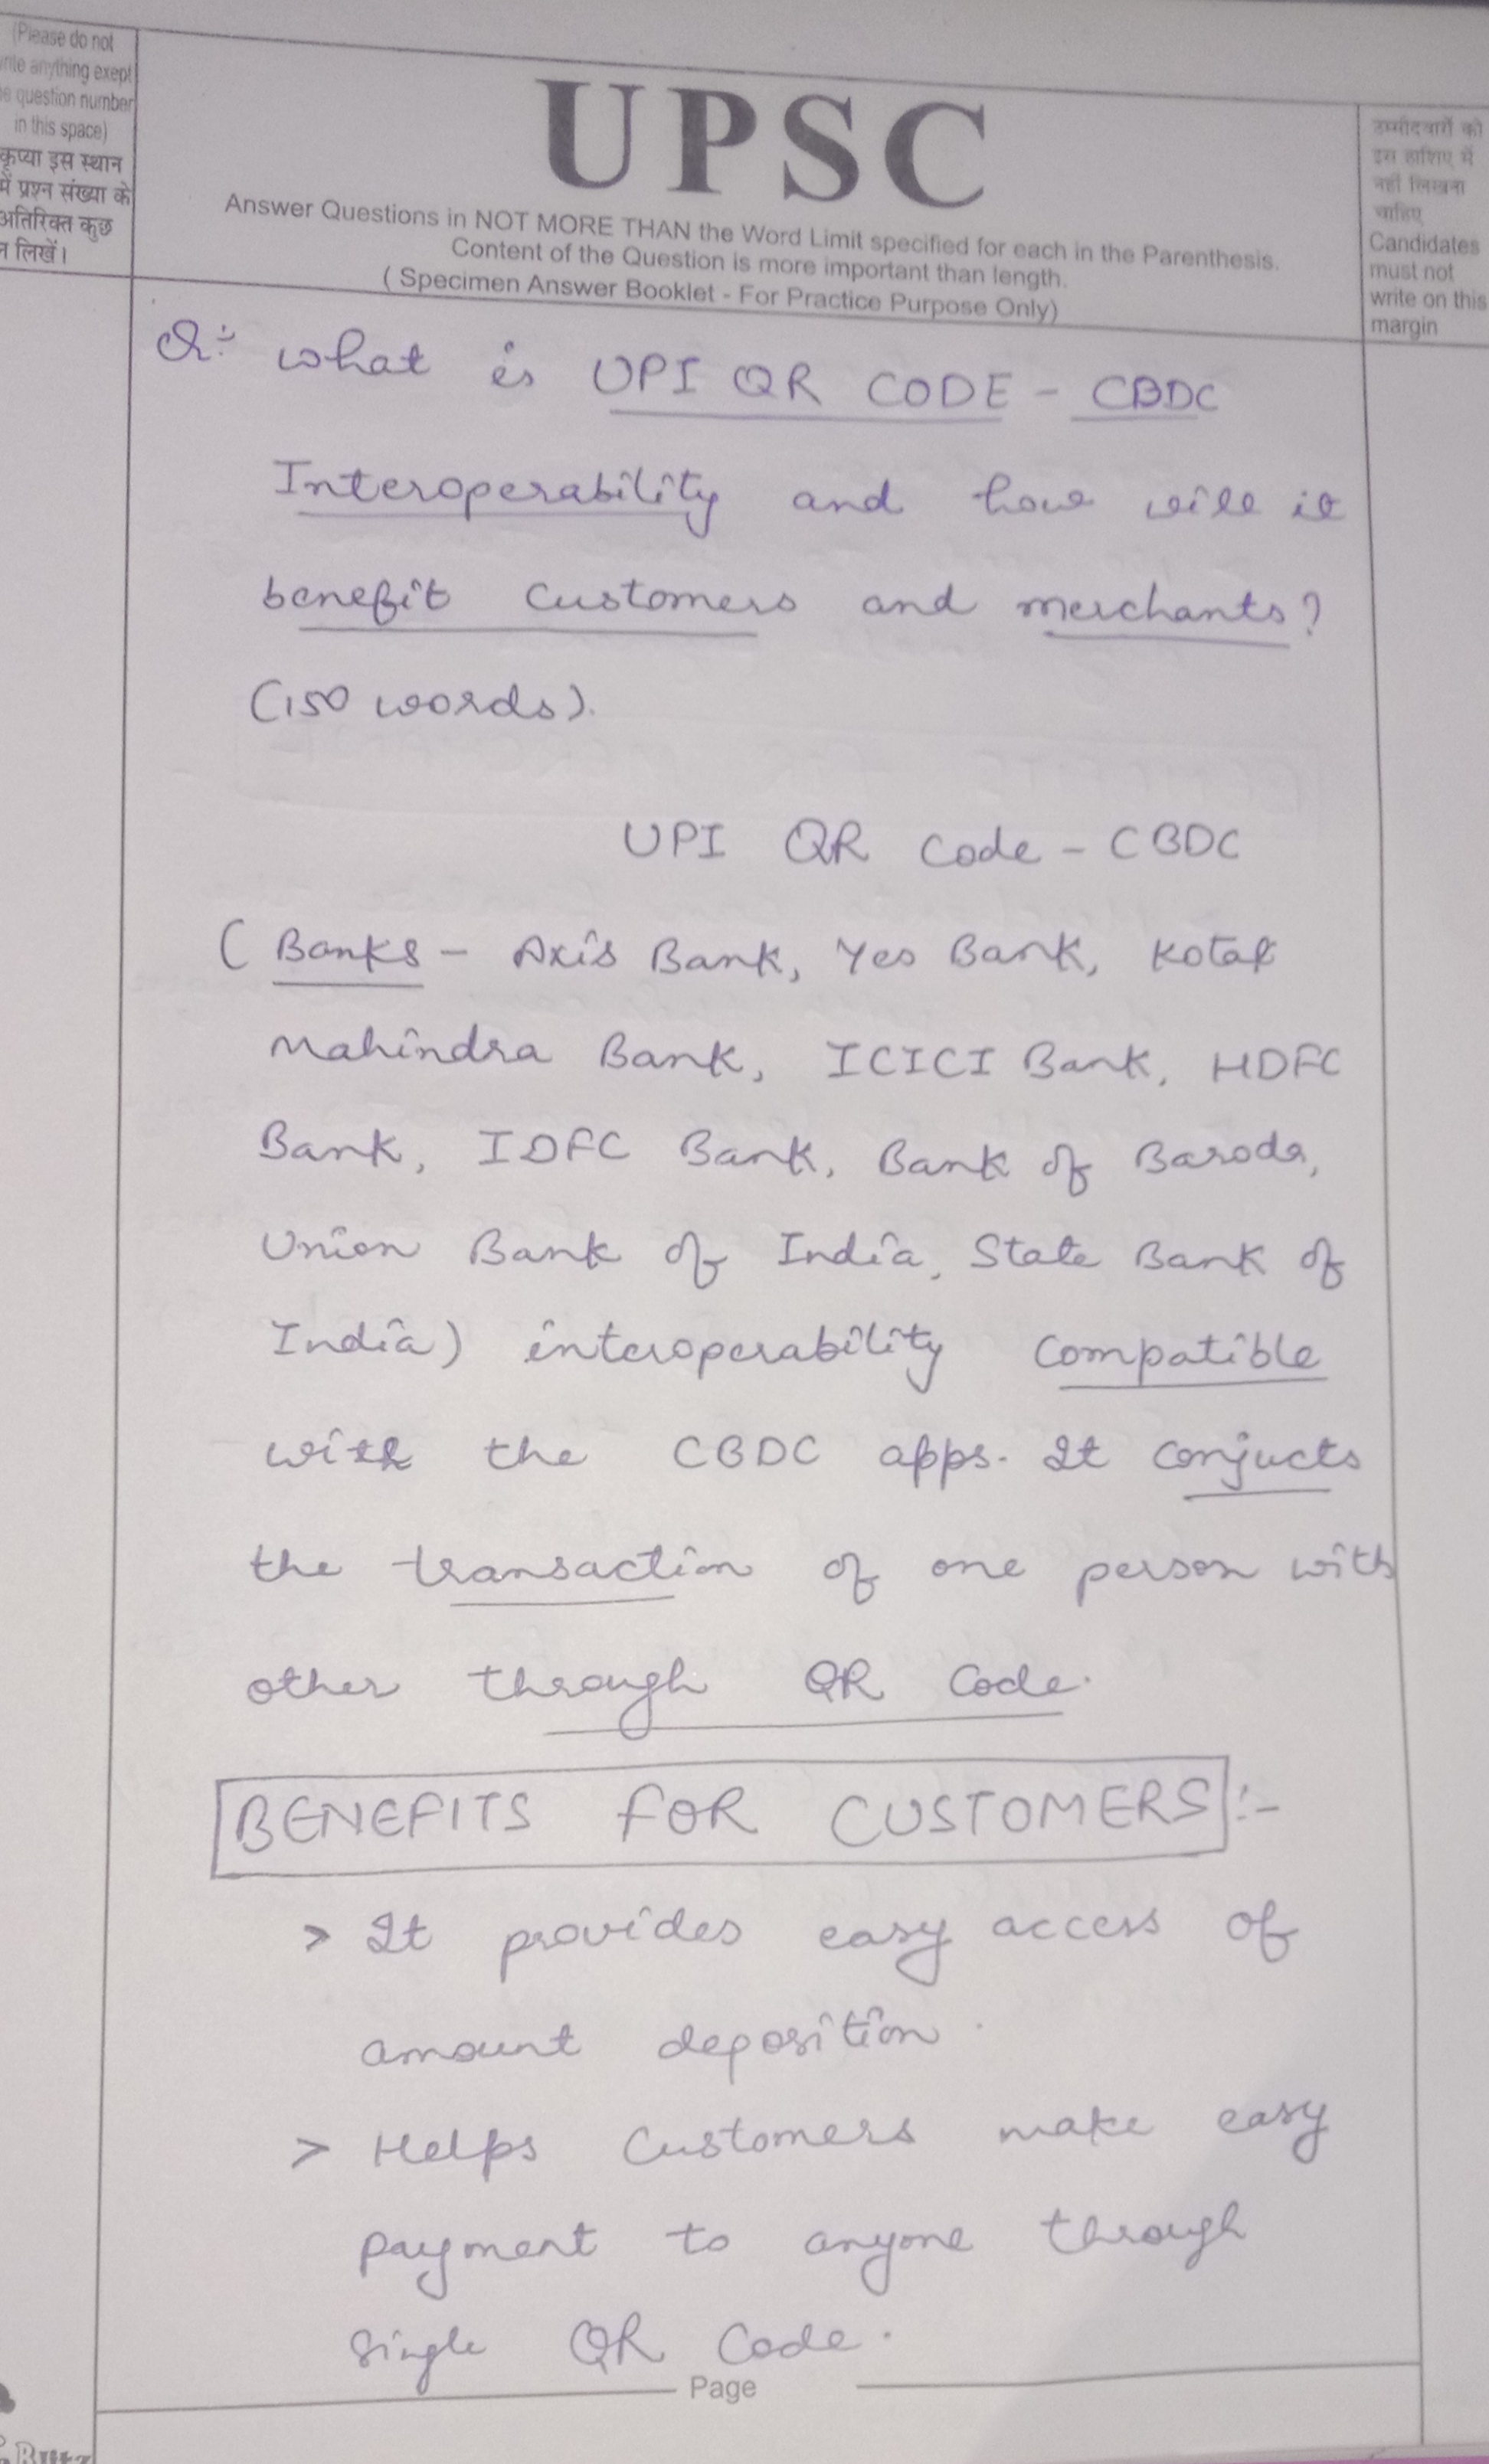 (Please do not
write anything exept
the question number
in this space)
कृप्या इस स्थान
में प्रश्न संख्या के
अतिरिक्त कुछ
न लिखें।
UPSC
Answer Questions in NOT MORE THAN the Word Limit specified for each in the Parenthesis.
Content of the Question is more important than length.
( Specimen Answer Booklet - For Practice Purpose Only)
उम्मीदवारों को
इस हाशिए में
नहीं लिखना
चाहिए
Candidates
must not
write on this
margin
Q:- what is UPI QR CODE - CBDC
Interoperability and how will it
benefit customers and merchants?
(150 words).
UPI QR Code - CBDC
( Banks - Axis Bank, Yes Bank, Kotak
Mahindra Bank, ICICI Bank, HDFC
Bank, IDFC Bank, Bank of Baroda,
Union Bank of India, State Bank of
India) interoperability compatible
with the CBDC apps. It conjucts
the transaction of one person with
other through QR Code.
BENEFITS FOR CUSTOMERS :-
> It provides easy access of
amount deposition.
> Helps customers make easy
payment to anyone through
single QR Code.
Page